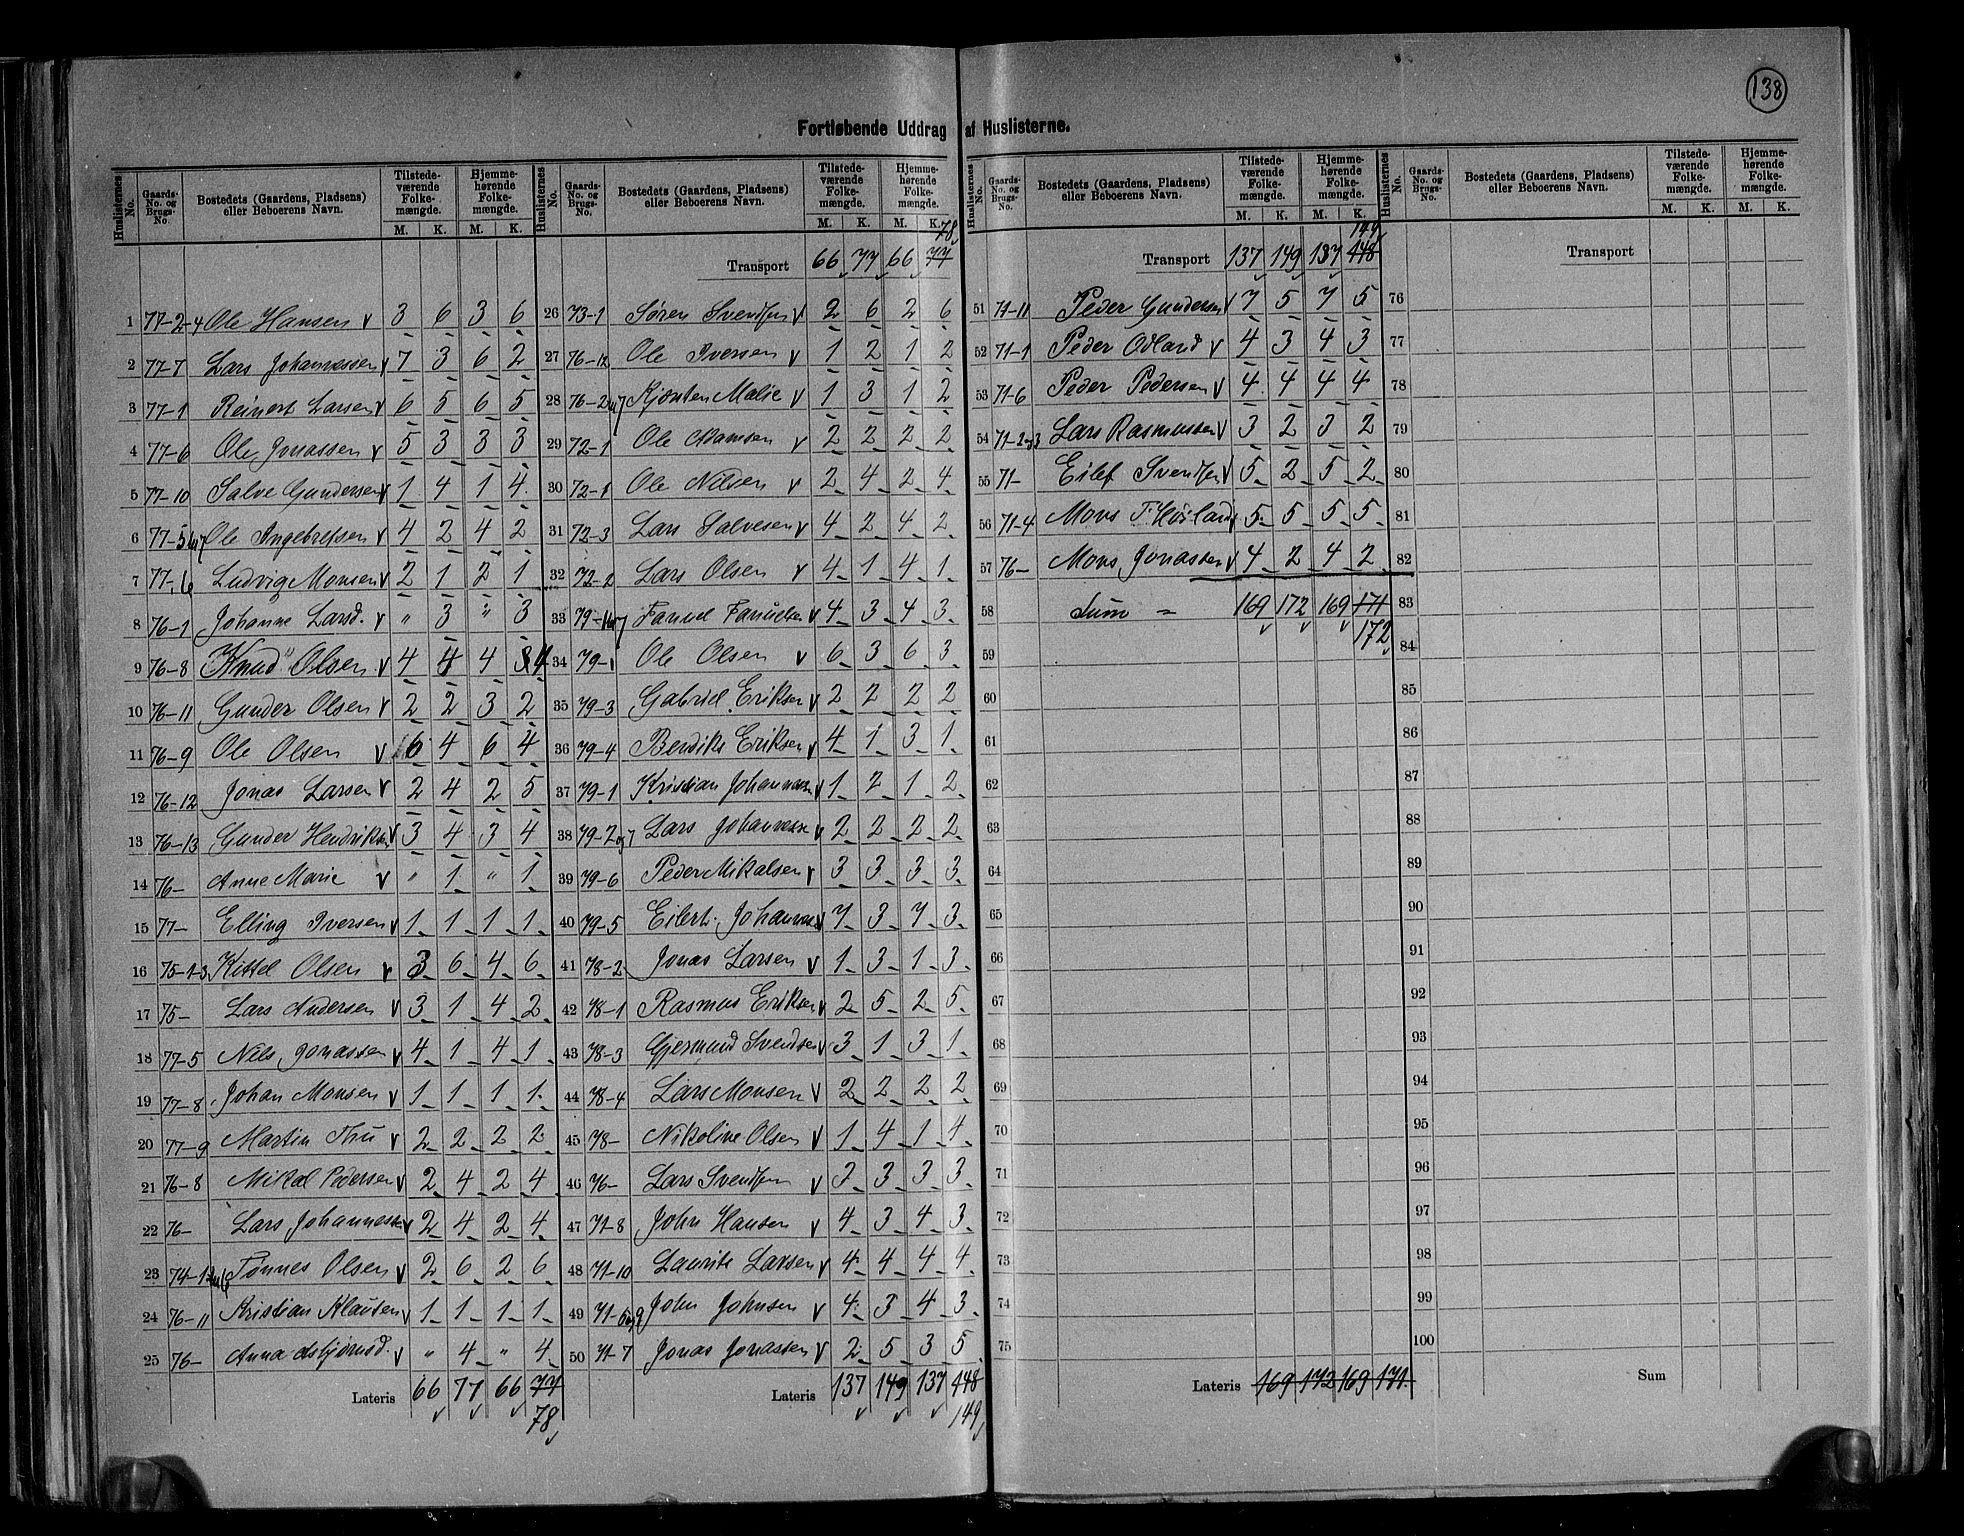 138
Fortløbende Uddrag af Huslisterne.
Huslisternes No. Gaards-No. og Brugs-No. Bostedets (Gaardens, Pladsens) eller Beboerens Navn. Tilstedeværende Folkemængde. M. K. Hjemmehørende Folkemængde. M. K.
1 77-2-4 Ole Hansen v 3 6 3 6
2 77-7 Lars Johannessen v 7 3 6 2
3 77-1 Reinert Larsen v 6 5 6 5
4 77-6 Ole Jonassen v 5 3 3 3
5 77-10 Salve Gundersen v 1 4 1 4
6 77-5 Ole Ingebretsen v 4 2 4 2
7 77-6 Ludvig Monsen v 2 1 2 1
8 76-1 Johanne Larsd. v " 3 " 3
9 76-8 "Knud" Olsen v 4 4 4 4
10 76-11 Gunder Olsen v 2 2 3 2
11 76-9 Ole Olsen v 6 4 6 4
12 76-12 Jonas Larsen v 2 4 2 5
13 76-13 Gunder Hendriksen v 3 4 3 4
14 76- Anne Marie v " 1 " 1
15 77- Elling Iversen v 1 1 1 1
16 75-1-3 Kittel Olsen v 3 6 4 6
17 75- Lars Andersen v 3 1 4 2
18 77-5 Nels Jonassen v 4 1 4 1
19 77-8 Johan Monsen v 1 1 1 1
20 77-9 Martin Thu v 2 2 2 2
21 76-8 Mikal Pedersen v 2 4 2 4
22 76- Lars Johannessen v 2 4 2 4
23 74-1 Tønnes Olsen v 2 6 2 6
24 76-11 Kristian Klausen v 1 1 1 1
25 76- Anna Asbjørnsd. v " 4 " 4
Lateris 66 77 66 77
78
Huslisternes No. Gaards-No. og Brugs-No. Bostedets (Gaardens, Pladsens) eller Beboerens Navn. Tilstedeværende Folkemængde. M. K. Hjemmehørende Folkemængde. M. K.
78
Transport 66 77 66 77
26 73-1 Søren Svendsen v 2 6 2 6
27 76-12 Ole Iversen v 1 2 1 2
28 76-2 Kjersten Malie v 1 3 1 2
29 72-1 Ole Hansen v 2 2 2 2
30 72-1 Ole Nilsen v 2 4 2 4
31 72-3 Lars Salvesen v 4 2 4 2
32 72-2 Lars Olsen v 4 1 4 1
33 79-1 Fanuel Fanuelsen 4 3 4 3
34 79-1 Ole Olsen v 6 3 6 3
35 79-3 Gabriel Eriksen v 2 2 2 2
36 79-4 Berdike Eriksen v 4 1 3 1
37 79-1 Kristian Johannessen v 1 2 1 2
38 79-2 og 7 Lars Johannesse v 2 2 2 2
39 79-6 Peder Mikalsen v 3 3 3 3
40 79-5 Eilert Johannes v 7 3 7 3
41 78-2 Jonas Larsen v 1 3 1 3
42 78-1 Rasmus Eriksen v 2 5 2 5
43 78-3 Gjermund Svendsen v 3 1 3 1
44 78-4 Lars Monsen v 2 2 2 2
45 78- Nikoline Olsen v 1 4 1 4
46 76- Lars Svendsen v 3 3 3 3
47 71-8 John Hansen v 4 3 4 3
48 71-10 Laurits Larsen v 4 4 4 4
49 71-6 og 9 John Johnsen v 4 3 4 3
50 71-7 Jonas Jonassen v 2 5 3 5
Lateris 137 149 137 148
149
Huslisternes No. Gaards-No. og Brugs-No. Bostedets (Gaardens, Pladsens) eller Beboerens Navn. Tilstedeværende Folkemængde. M. K. Hjemmehørende Folkemængde. M. K.
149
Transport 137 149 137 148
51 71-11 Peder Gundersen v 7 5 7 5
52 71-1 Peder Odland v 4 3 4 3
53 71-6 Peder Pedersen v 4 4 4 4
54 71-2 og 3 Lars Rasmussen v 3 2 3 2
55 71- Eilef Svendsen v 5 2 5 2
56 71-4 Mons T. Høiland v 5 5 5 5
57 76- Mons Jonassen v 4 2 4 2
58 Sum = 169 172 169 171
172
59
60
61
62
63
64
65
66
67
68
69
70
71
72
73
74
75
Lateris 169 172 169 171
Huslisternes No. Gaards-No. og Brugs-No. Bostedets (Gaardens, Pladsens) eller Beboerens Navn. Tilstedeværende Folkemængde. M. K. Hjemmehørende Folkemængde. M. K.
Transport
76
77
78
79
80
81
82
83
84
85
86
87
88
89
90
91
92
93
94
95
96
97
98
99
100
Sum